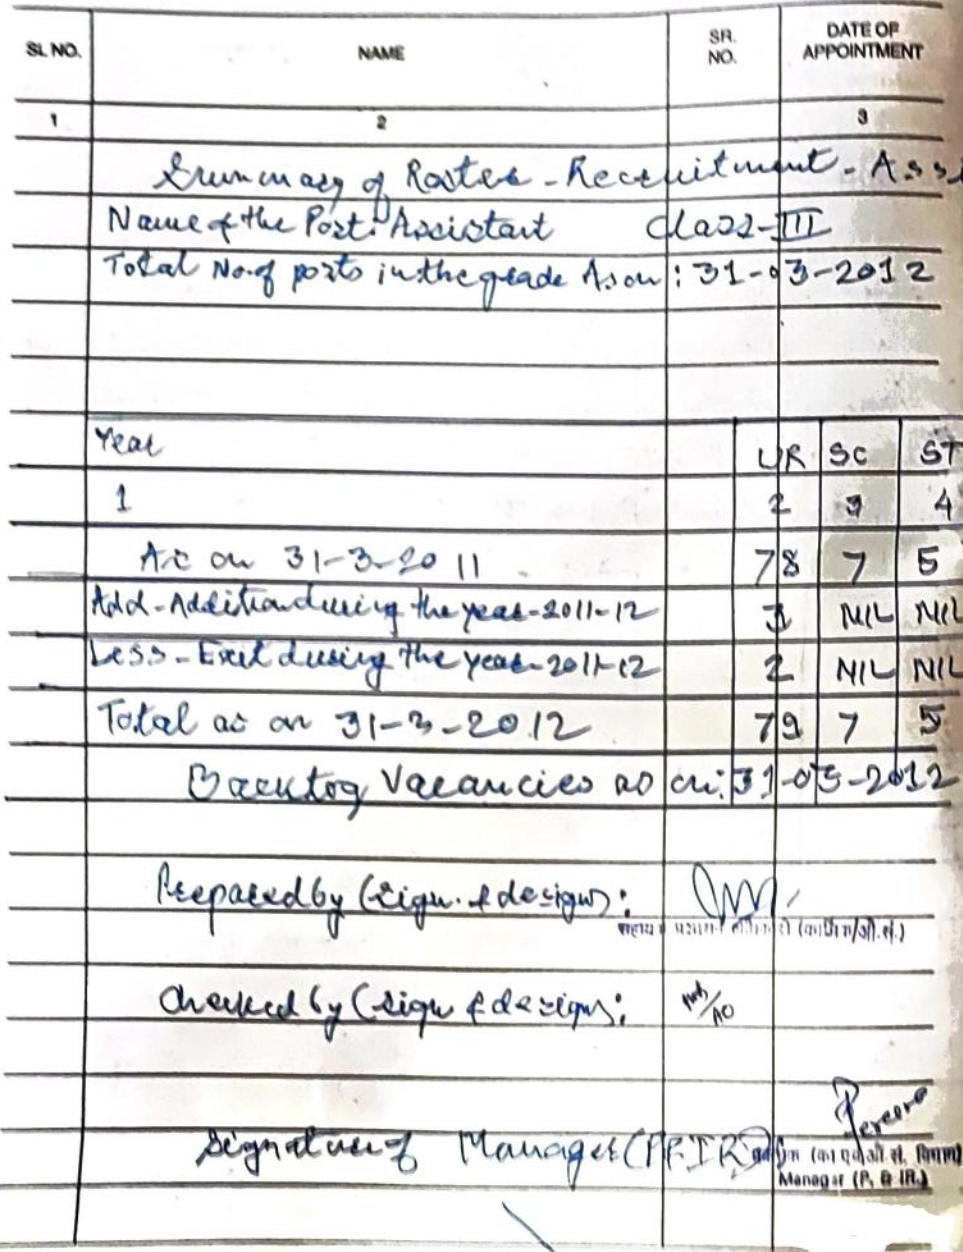 SL NO. NAME SR. NO. DATE OF APPOINTMENT
1 2 3
Summary of Roster - Recruitment - Assi
Name of the Post: Assistant Class-III
Total No. of posts in the grade As on: 31-03-2012
Year UR SC ST
1 2 3 4
As on 31-3-2011 78 7 5
Add - Addition during the year - 2011-12 3 NIL NIL
Less - Exit during the year - 2011-12 2 NIL NIL
Total as on 31-3-2012 79 7 5
Backlog Vacancies as on: 31-03-2012
Prepared by (sign. & design):
(कार्मिक/औ.सं.)
Checked by (sign & design): /AO
Signature of Manager (P&IR)
Manager (P. & IR.)